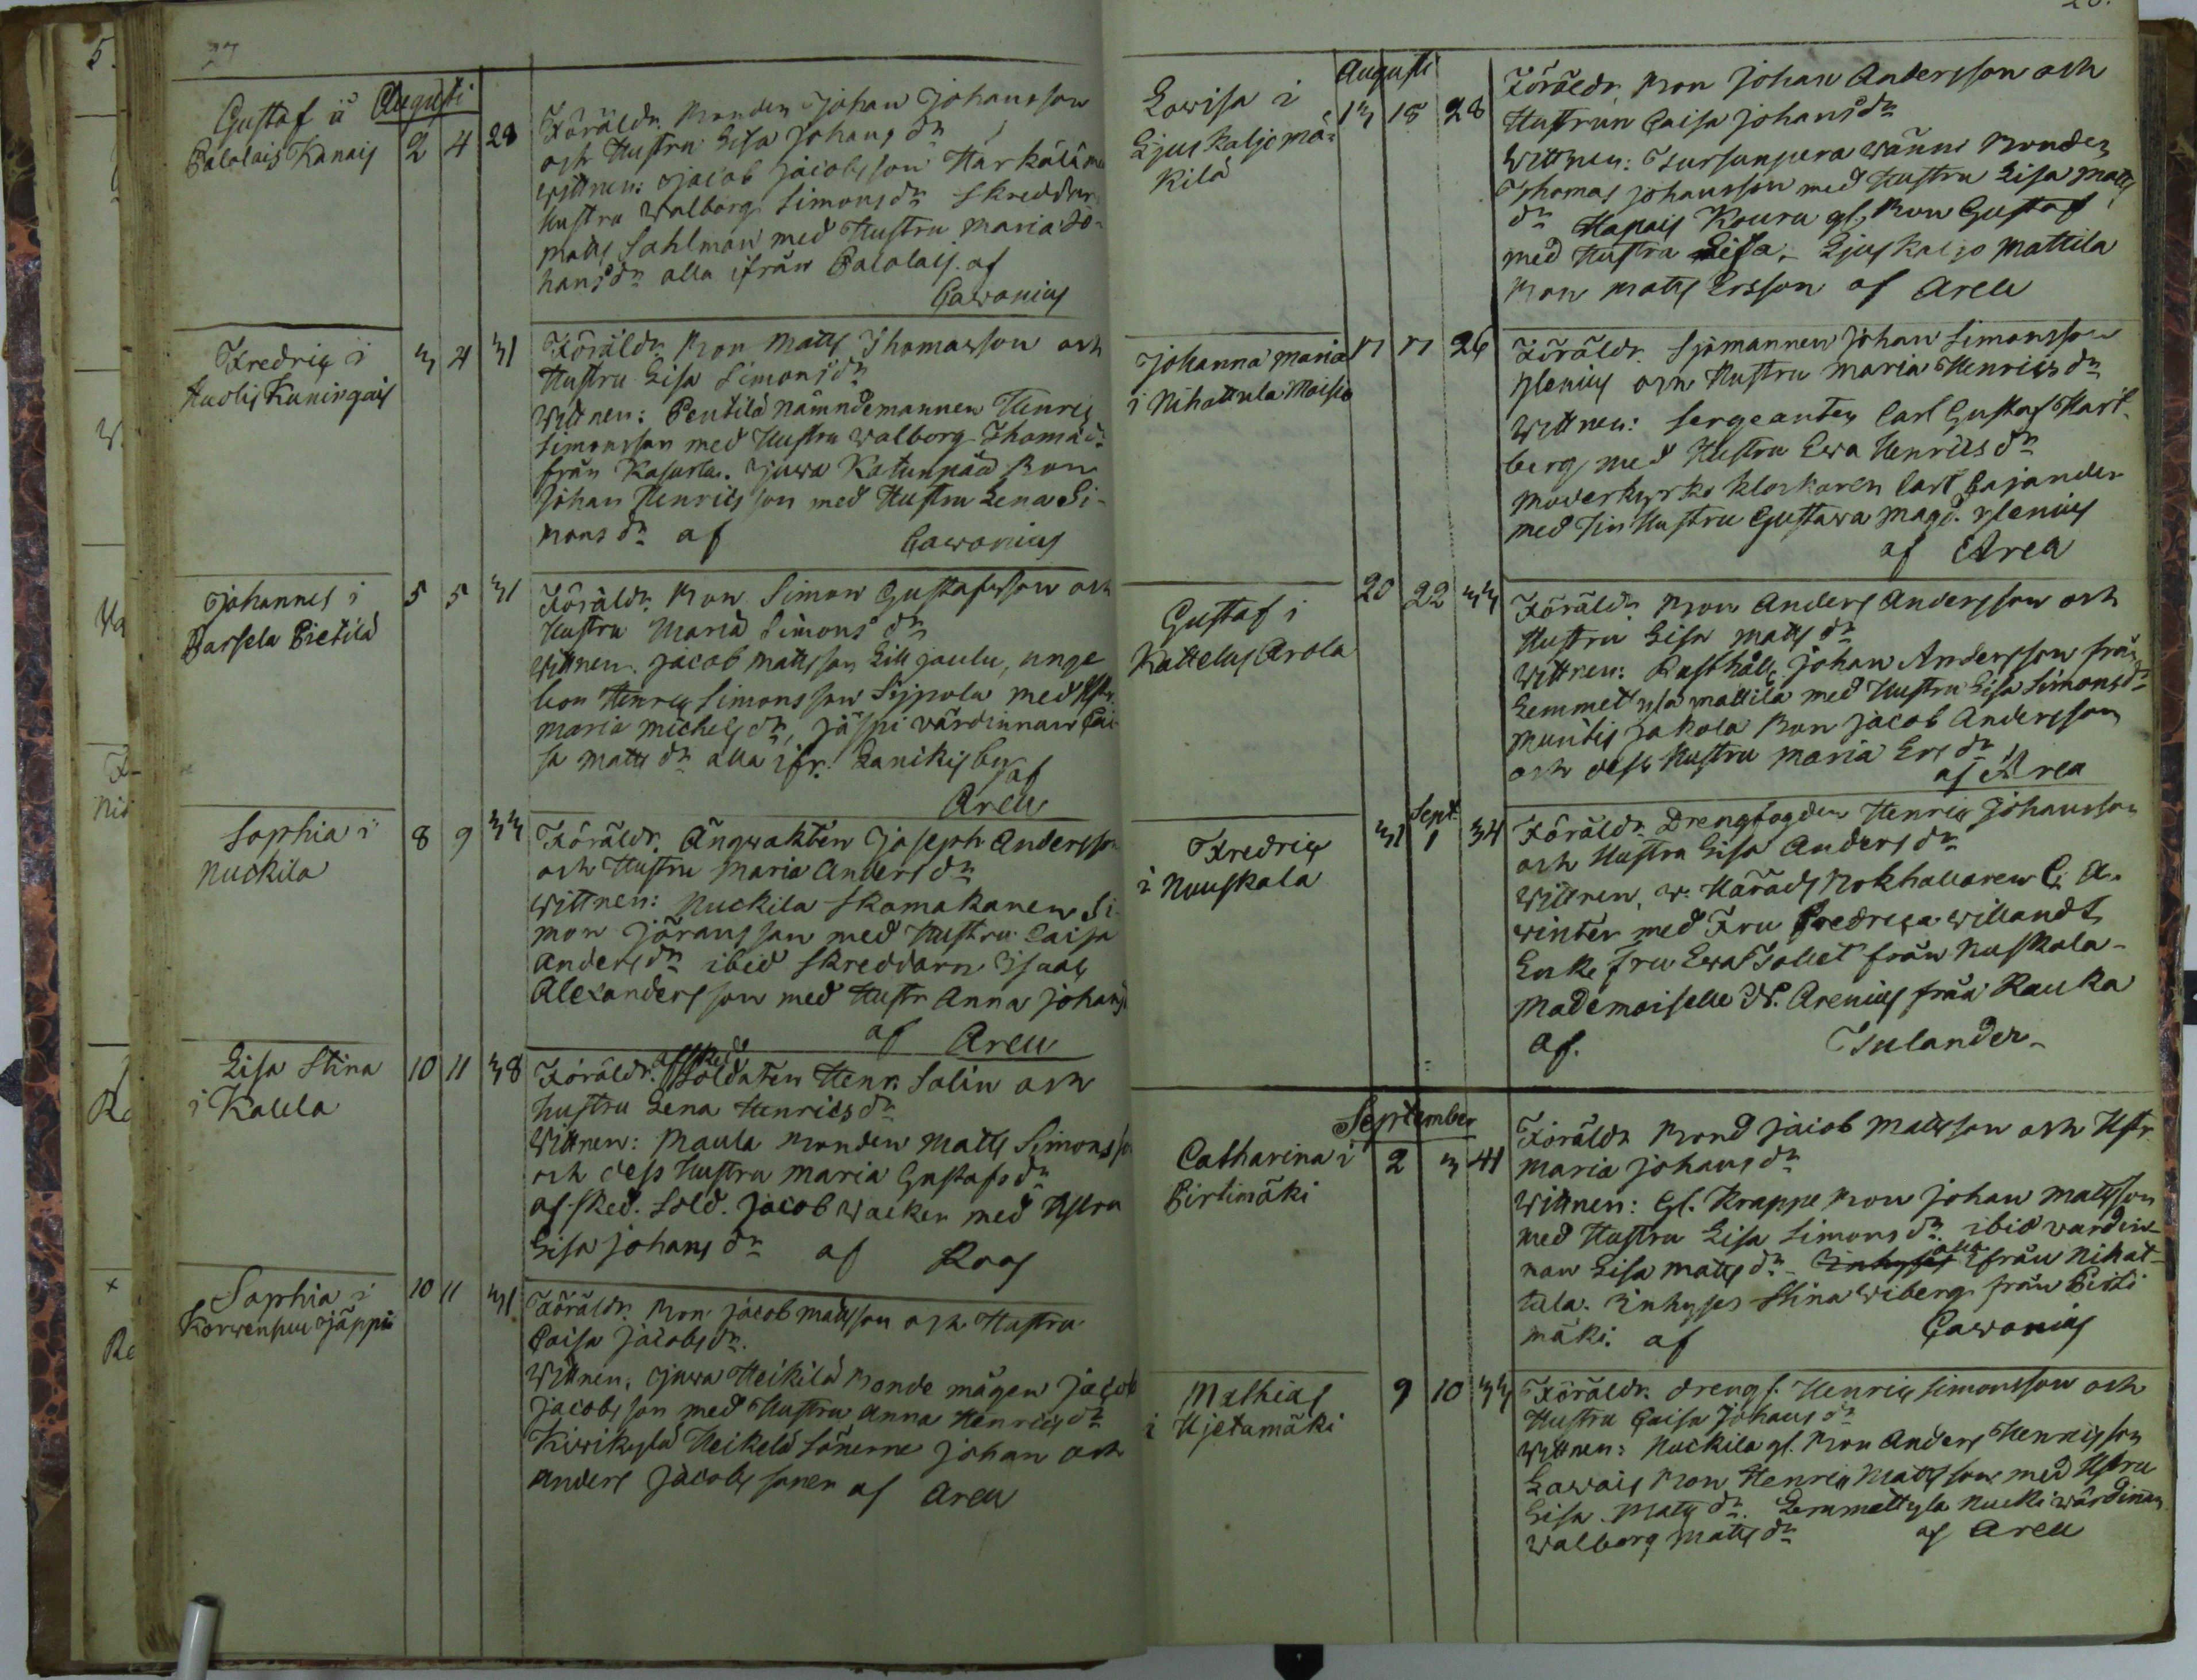 27
Augusti
Gustaf i
Palolais Kanais
2 4 28
Föräldr. Bonden Johan Johansson
och Hustru Lisa Johans dr
Wittnen: Jacob Jacobsson Harkälä med
Hustru Walborg Simons dr Skreddar.
Matts Sahlman med Hustru Maria Jo-
hans dr alla ifrån Palolais. af
Cawonius
Fredric i
Huolis Kuningais
3 4 31
Föräldr. Bon Matts Thomasson och
Hustru Lisa Simons dr
Wittnen: Pentilä Nämndemannen Henric
Simonsson med Hustru Walborg Thomæ dr
från Kasurla. Juwa Katunpää Bon
Johan Henricsson med Hustru Lena Si-
mons dr af Cawonius
Johannes i
Parsela Pietilä
5 5 31
Föräldr. Bon Simon Gustafsson och
Hustru Maria Simons dr
Wittnen. Jacob Mattsson Lill jaulu, unge
bon Henric Simonsson Sippola med Hstr.
Maria Michels dr, Jäspi värdinnan Cai-
sa Matts dr alla ifr. Lanikis by
af
Areu
Sophia i
Nuckila
8 9 33
Föräldr. Ängwakten Joseph Andersson
och Hustru Maria Anders dr
Wittnen: Nuckila Skomakaren Si-
mon Jöransson med Hustru Caisa
Anders dr ibid Skreddarn Isaac
Alexandersson med Hustr Anna Johans
af Areu
Lisa Stina
i Kalela
10 11 38
Föräldr. afsked Soldaten Henr. Salin och
hustru Lena Henrics dr
Wittnen: Maula Bonden Matts Simonsson
och dess Hustru Maria Gustafs dr
af-sked. Sold. Jacob Wacker med Hstru
Lisa Johans dr af Roos
Sophia i
Korwenpuu Jäppi
10 11 31
Föräldr. Bon Jacob Mattsson och Hustru
Caisa Jacobs dr.
Wittnen. Juwa Heikilä Bonde mågen Jacob
Jacobsson med Hustru Anna Henrics dr
Kiwikylä Heikelä Sönerne Johan och
Anders Jacobs soner af Areu
Augusti
Lowisa i
Ljuskaljo mä-
kilä
13 18 28
Föräldr. Bon Johan Andersson och
Hustrun Caisa Johans dr
Wittnen: Tursunpera Wänni Bonden
Thomas Johansson med Hustru Lisa Matts
dr Hapais Koura gl. Bon Gustaf
med Hustru Lisa, Ljuskaljo Mattila
Bon Matts Ersson af Areu
Johanna Maria
i Nihattula Moisio
17 17 26
Föräldr. Sjömannen Johan Simonsson
Ylenius och Hustru Maria Henrics dr
Wittnen: Sergeanten Carl Gustaf Hart-
berg med Hustru Ewa Henrics dr
Moderkyrko Klockaren Carl Cajander
med sin Hustru Gustava Magd. Ylenius
af Areu
Gustaf i
Kattelus Arola
20 22 33
Föräldr. Bon Anders Andersson och
Hustru Lisa Matts dr
Wittnen: Rusthåll. Johan Andersson från
Lemmetyla Mattila med Hustru Lisa Simons dr
Muntis Jakola Bon Jacob Andersson
och dess Hustru Maria Ers dr
af Areu
Sept.
Fredric
i Nuuskala
31 1 34
Föräldr. Drengfogden Henric Johansson
och Hustru Lisa Anders dr
Wittnen, w. Härads Bokhallaren C. A.
Winter med Fru Fredrica Willandt,
Enke Fru Ewa Tollet från Nuskala-
Mademoiselle N. Arenius från Rauka
af. Tulander-
September
Catharina i
Pirtimäki
2 3 41
Föräldr Bond Jacob Mattsson och Hstr.
Maria Johans dr
Wittnen: Gl. Krappe Bon Johan Mattsson
med Hustru Lisa Simons dr. ibid vardin-
nan Lisa Matts dr- Inhyses alla ifrån Nihat-
tula. Inhyses Stina Wiberg från Pirti
mäki. af Cawonius
Mathias
i Hjetamäki
9 10 33
Föräldr. drengs. Henric Simonsson och
Hustru Caisa Johans dr
Wittnen: Nuckila gl. Bon Anders Henricsson
Lawais Bon Henric Mattsson med Hstru
Lisa Matts dr. Lemmettyla Nucki wärdinnan
Walborg Matts dr af Areu